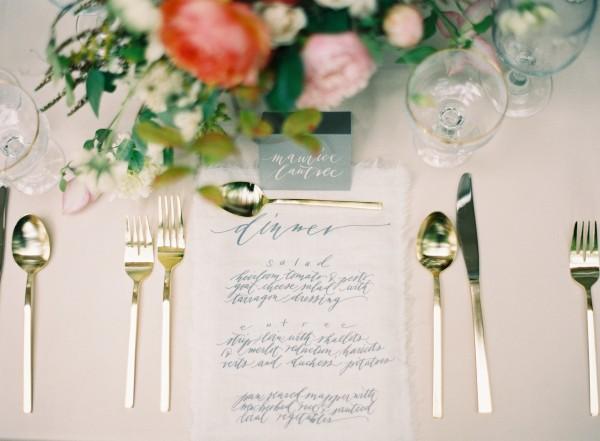 maurice
lantree
dinner
salad
heirloom tomato & pesto
goat cheese salad with
tarragon dressing
entree
strip loin with shallots
& merlot reduction, haricots
verts and duchess potatoes
pan seared snapper with
herbed rice & sauteed
local vegetables